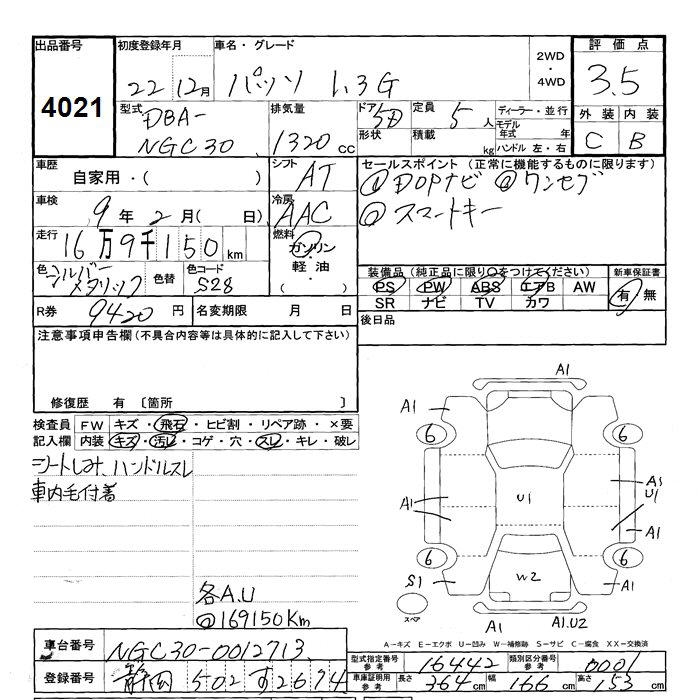 出品番号 初度登録年月 車名・グレード 2WD・4WD 評価点
4021 22 12月 パッソ 1.3G 3.5
型式 DBA-NGC30 排気量 1320cc ドア 5D 形状 定員 5人 積載 kg ディーラー・並行 モデル年式 年 ハンドル 左・右 外装 内装
C B
車歴 自家用・( ) シフト AT セールスポイント(正常に機能するものに限ります)
車検 9年2月( 日) 冷房 AAC ◎DOPナビ ◎ワンセグ
走行 16万9千150km 燃料 ガソリン・軽油・( ) ◎スマートキー
色 シルバーメタリック 色替 色コード S28 装備品(純正品に限り○をつけてください) 新車保証書
PS PW ABS エアB AW
SR ナビ TV カワ 有・無
R券 9420円 名変期限 月 日 後日品
注意事項申告欄(不具合内容等は具体的に記入して下さい)
修復歴 有 〔箇所 〕
検査員 FW キズ・飛石・ヒビ割・リペア跡・×要
記入欄 内装 キズ・汚レ・コゲ・穴・スレ・キレ・破レ
シートしみ、ハンドルスレ
車内毛付着
各A.U
@169150Km
A1
A1 A1
6 6
A1 U1 A1
U1
A1
6 6
S1 W2 A1
スペア A1 A1.U2
A-キズ E-エクボ U-凹み W-補修跡 S-サビ C-腐食 XX-交換済
車台番号 NGC30-0012713 型式指定番号 参考 16442 類別区分番号 参考 0001
登録番号 静岡 502 す 2674 車庫証明用 参考 長さ 364cm 幅 166cm 高さ 153cm